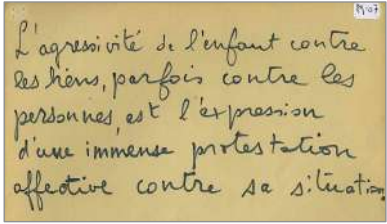 19.07
L'agressivité de l'enfant contre
les liens, parfois contre les
personnes, est l'expression
d'une immense protestation
affective contre sa situation.